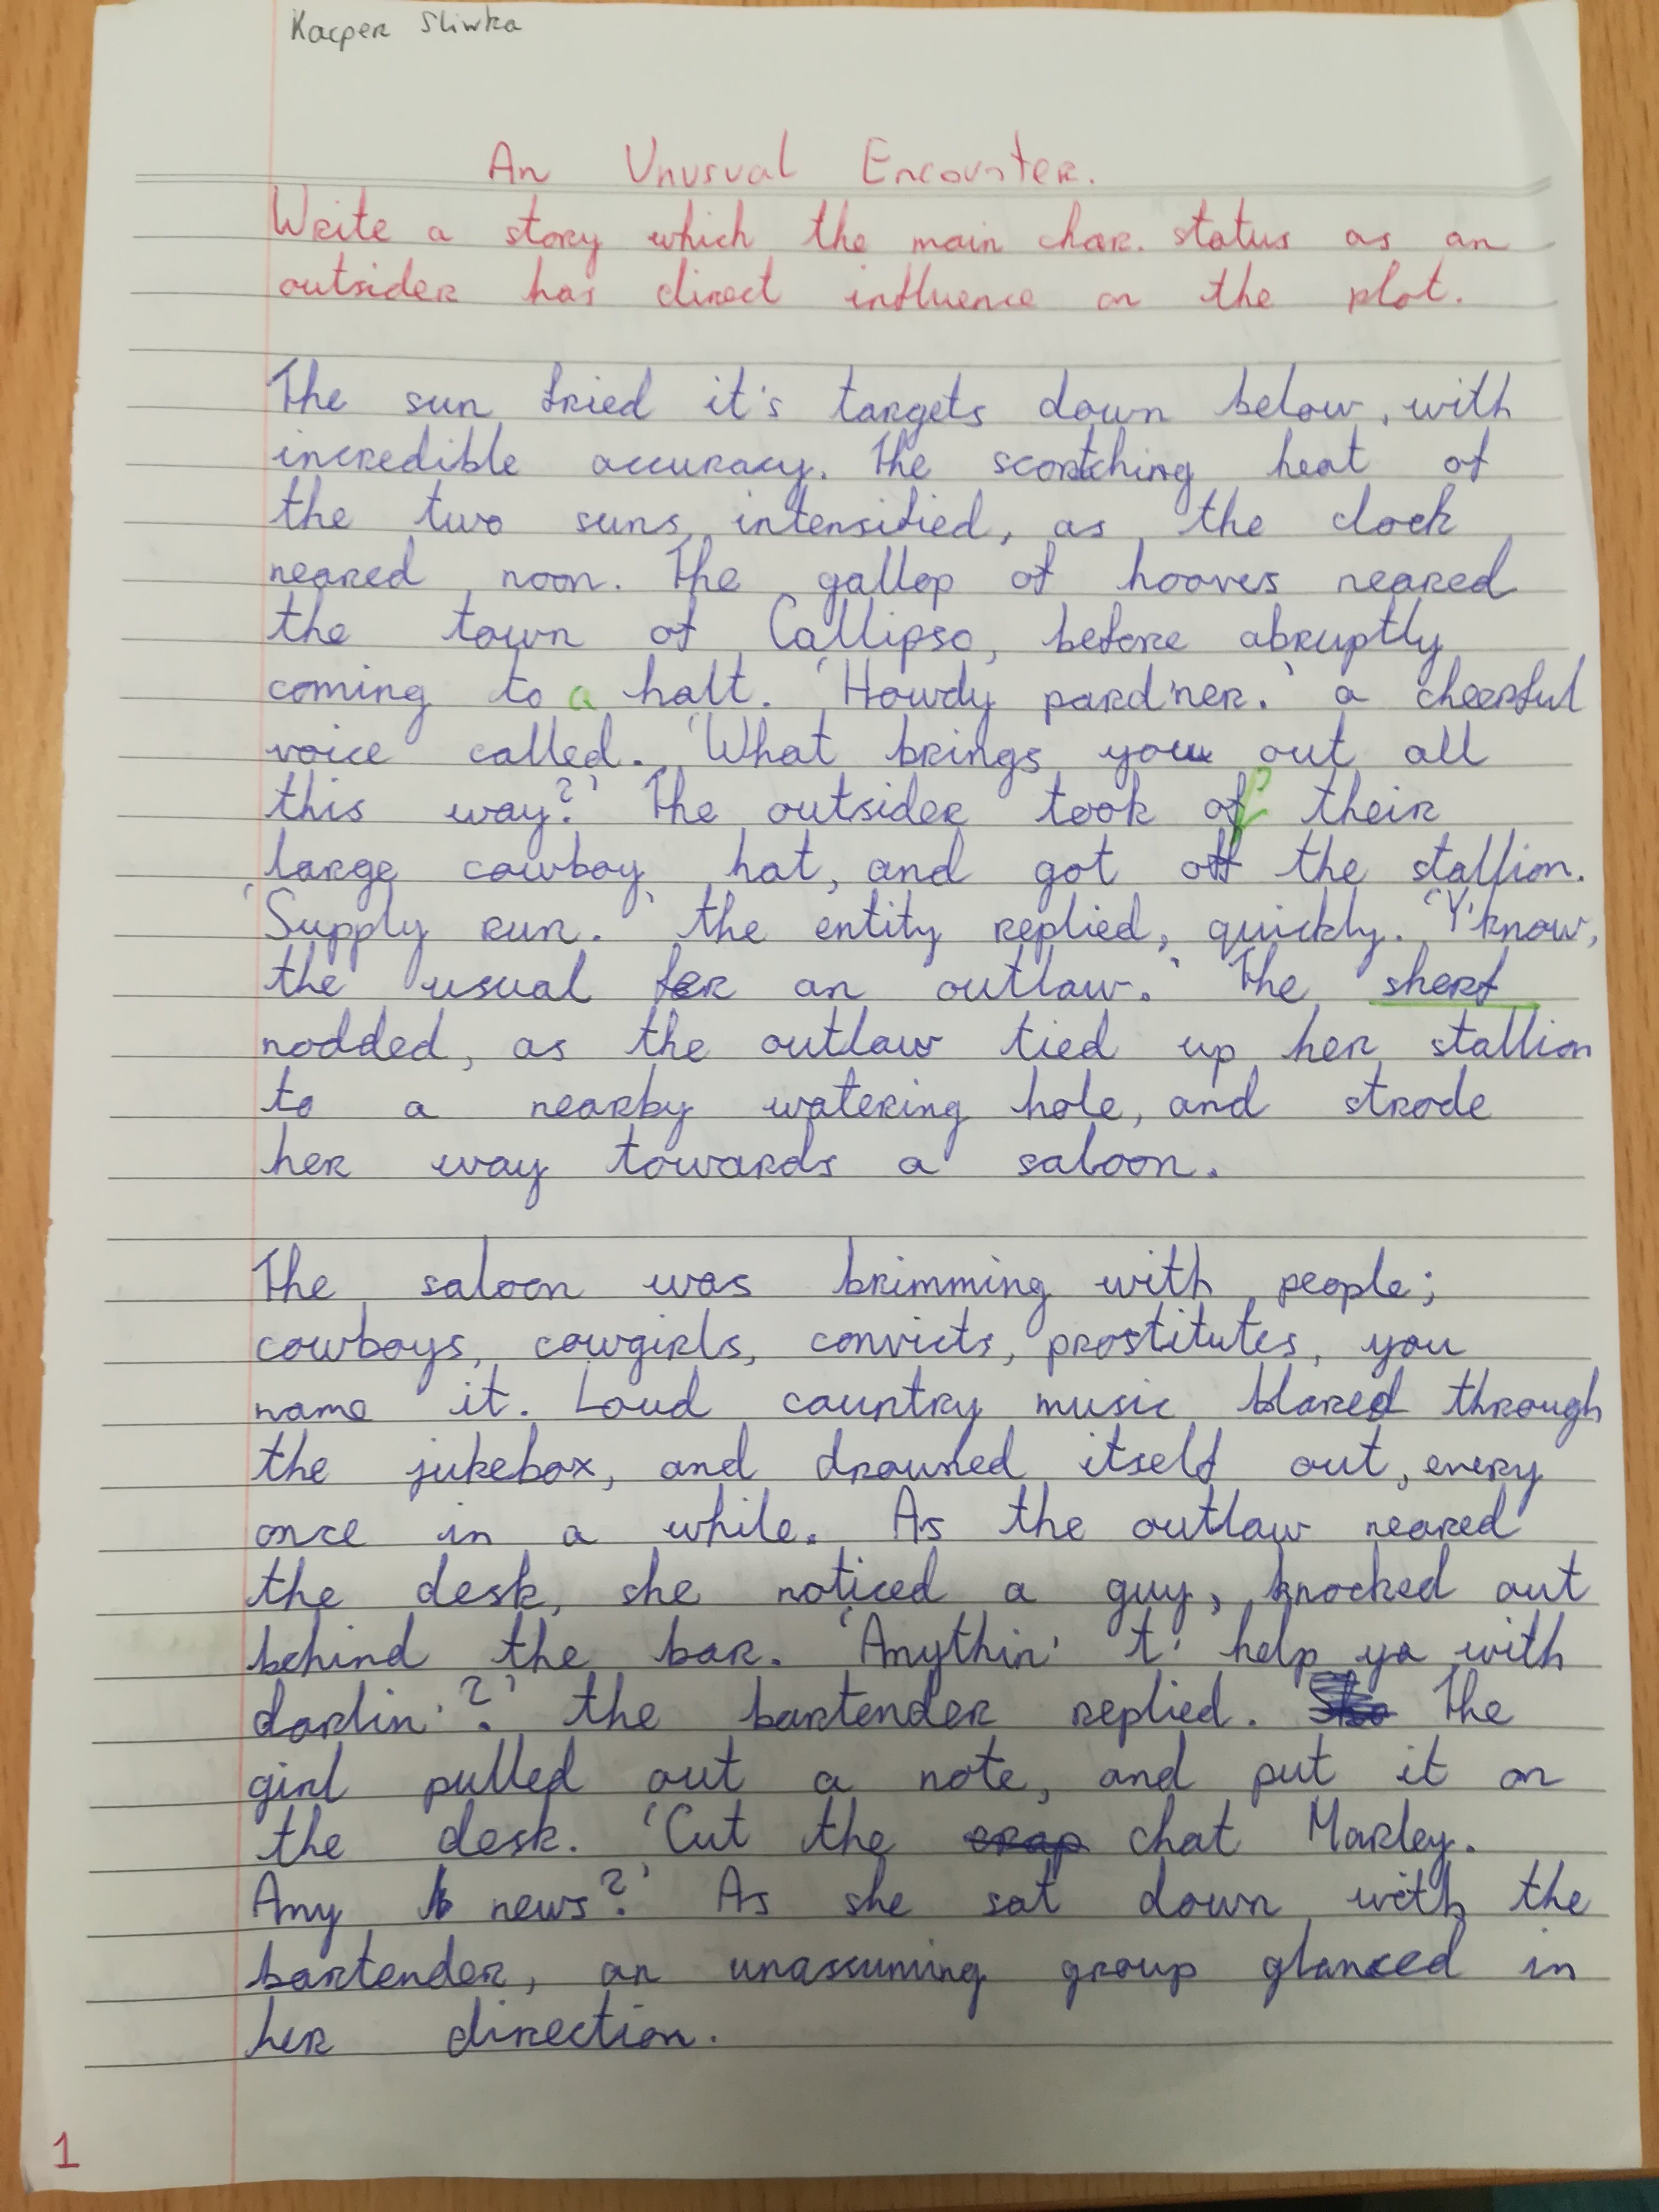 Kacper Sliwka
An Unusual Encounter.
Write a story which the main char. status as an
outsider has direct influence on the plot.
The sun fried it's targets down below, with
incredible accuracy. The scortching heat of
the two suns intensified, as the clock
neared noon. The gallop of hooves neared
the town of Callipso, before abruptly
coming to a halt. 'Howdy pard'ner.' a cheerful
voice called. 'What brings you out all
this way?' The outsider took off their
large cowboy hat, and got off the stallion.
'Supply run.' the entity replied, quickly. 'Y'know,
the usual fer an outlaw.' The sherf
nodded, as the outlaw tied up her stallion
to a nearby watering hole, and strode
her way towards a saloon.
The saloon was brimming with people;
cowboys, cowgirls, convicts, prostitutes, you
name it. Loud country music blared through
the jukebox, and drowned itself out, every
once in a while. As the outlaw neared
the desk, she noticed a guy, knocked out
behind the bar. 'Anythin' t' help ya with
darlin'?' the bartender replied. The
girl pulled out a note, and put it on
the desk. 'Cut the crap chat Marley.
Any news?' As she sat down with the
bartender, an unassuming group glanced in
her direction.
1